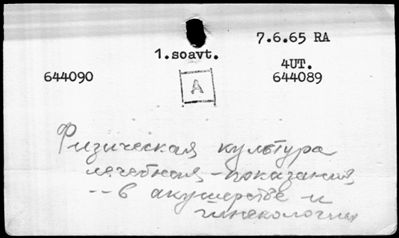 7.6.65 RA
1.soavt.
4UT.
644090
644089
A
Физическая культура
лечебная - показания,
-- в акушерстве и
гинекологии